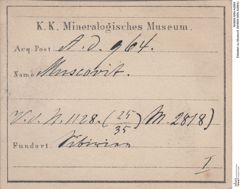 K. K. Mineralogisches Museum.
Acq. Post A. d. 964.
Name Muscovit.
V. d. N. 1128. (25/35) M. 2818)
Fundort Sibirien
I